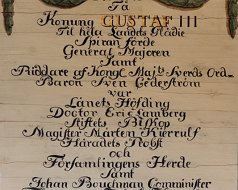 Då
Konung GUSTAF III
Til hela Landets Glädie
Spiran förde
General Majoren
Samt
Riddare af Kongl Maj:ts Sverds Ord.
Baron Sven Cederström
var
Länets Höfding
Doctor Eric Lamberg
Stiftets Biskop
Magister Mårten Kierrulf
Häradets Probst
och
Församlingens Herde
Samt
Johan Bouchman Comminister